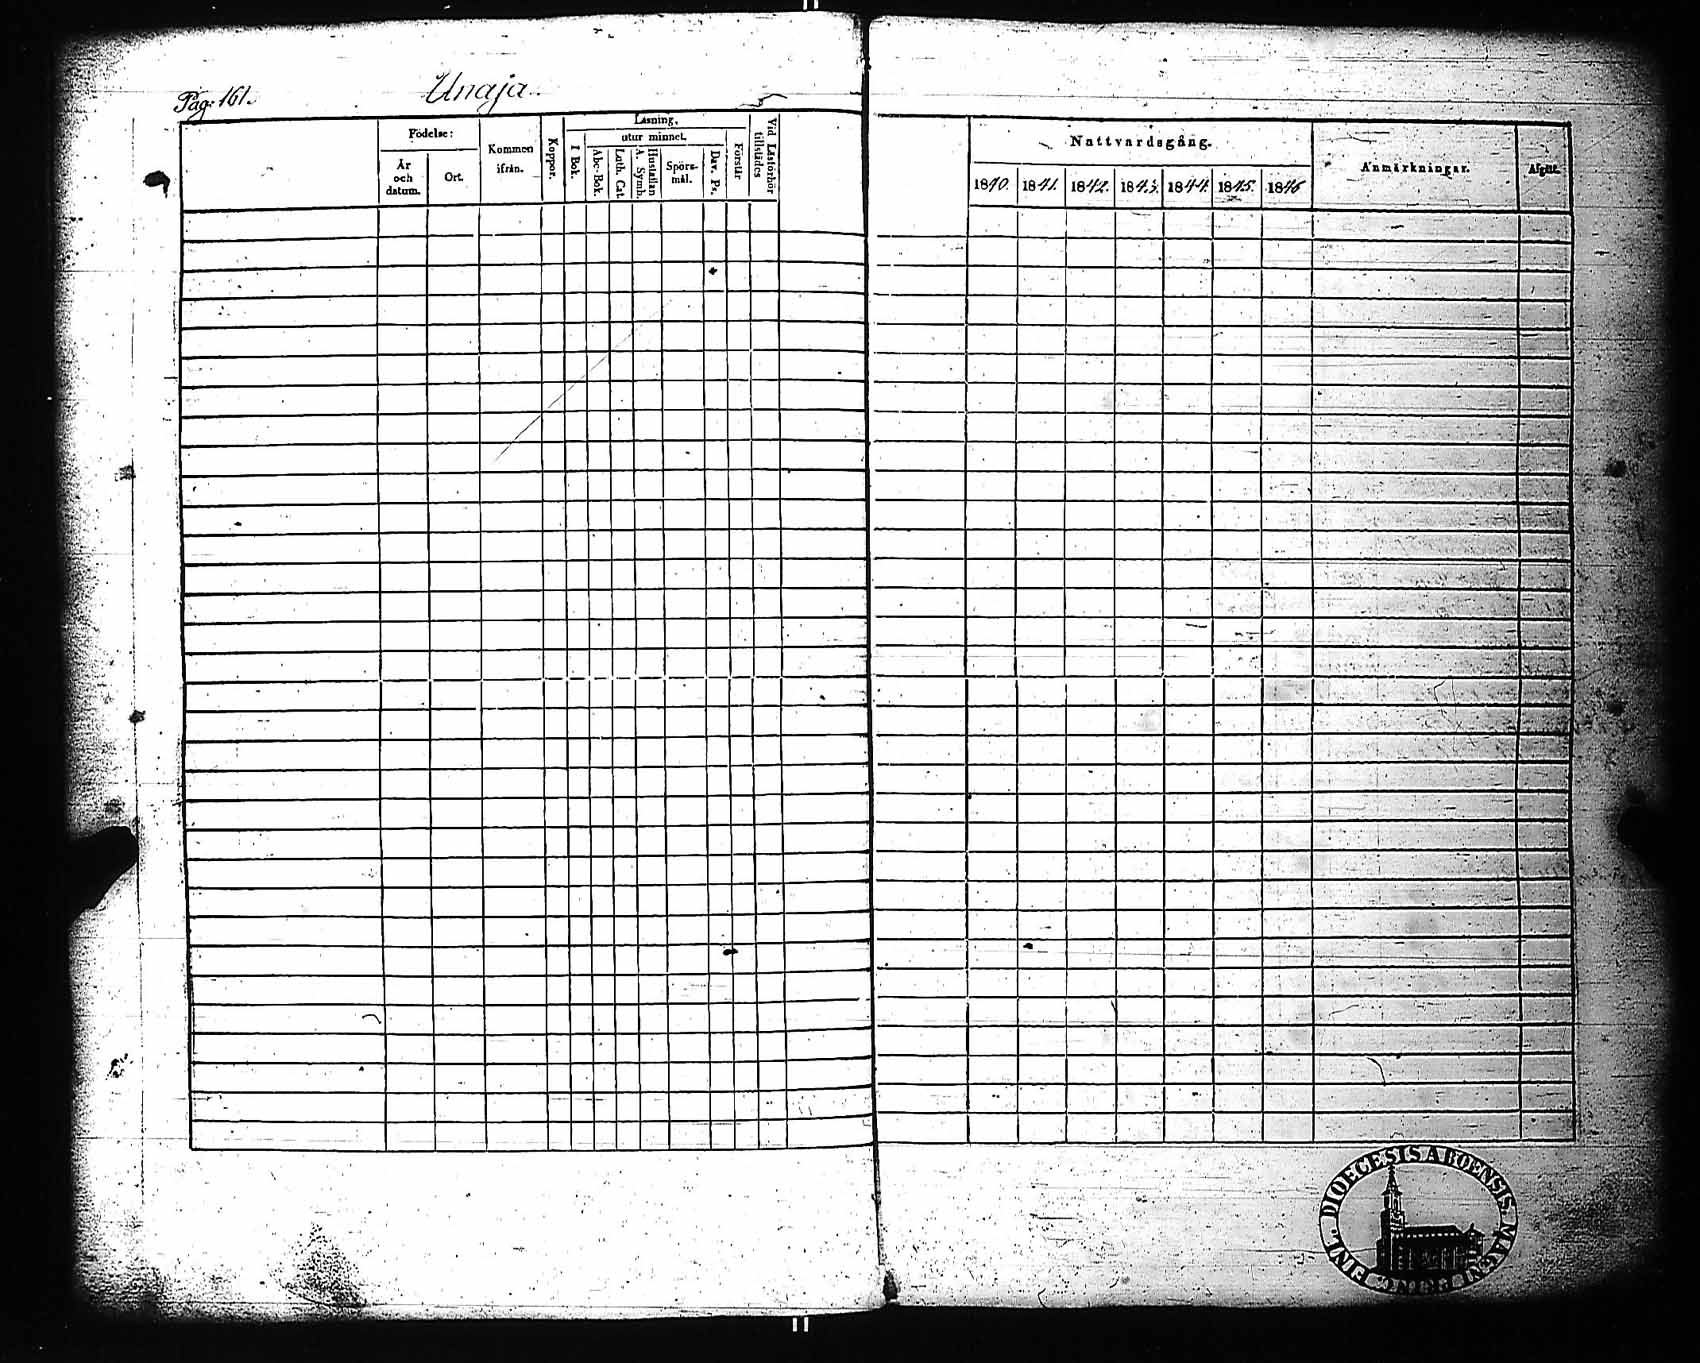 Pag: 161. Unaja.
Födelse: Kommen ifrån. Koppor. Läsning. Vid Läsförhör tillstädes
utur minnet.
År och datum. Ort. I Bok. Abc-Bok. Luth. Cat. Hustaflan A. Symb. Spörs-mål. Dav. Ps. Förstår
Nattvardsgång. Anmärkningar. Afgått.
1840. 1841. 1842. 1843. 1844. 1845. 1846
DIOECESIS ABOENSIS. MAGNI PRINC. FINL.